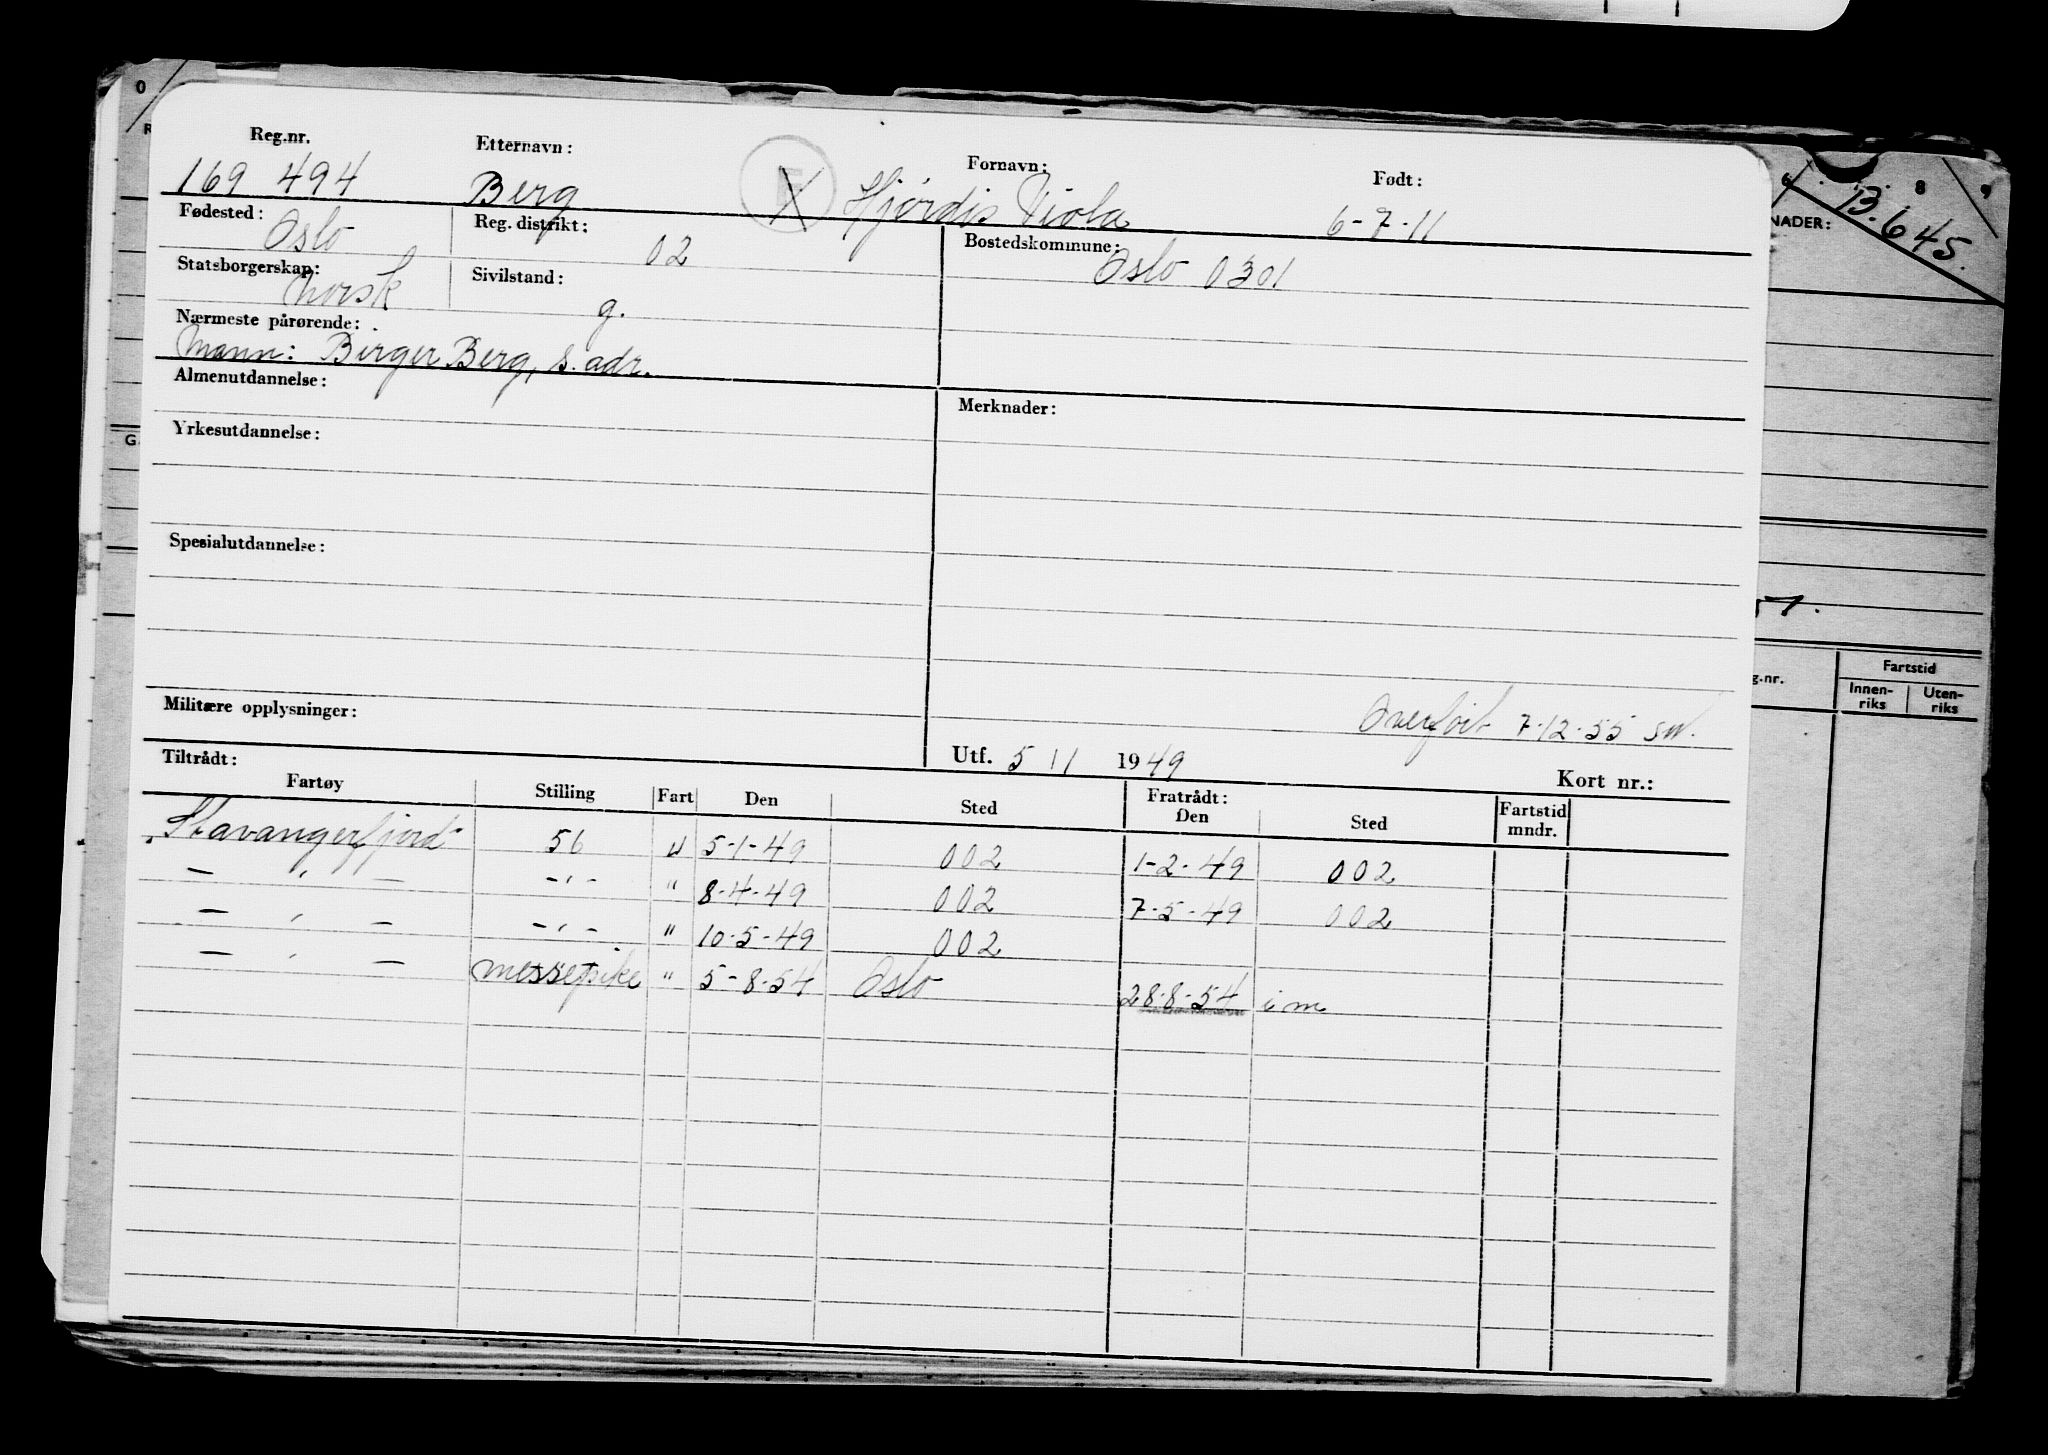 Reg.nr. Etternavn: Fornavn: Født:
169 494 Berg X Hjørdis Viola 6-7-11
Fødested: Oslo Reg. distrikt: 02 Bostedskommune: Oslo 0301
Statsborgerskap: norsk Sivilstand: g.
Nærmeste pårørende:
Mann: Birger Berg, s. adr.
Almenutdannelse: Merknader:
Yrkesutdannelse:
Spesialutdannelse:
Overført 7-12-55
Militære opplysninger:
Utf. 5 11 1949 Kort nr.:
Tiltrådt: Fratrådt:
Fartøy Stilling Fart Den Sted Den Sted Fartstid mndr.
Stavangerfjord 56 U 5-1-49 002 1-2-49 002
— " — -"- " 8-4-49 002 7-5-49 002
— " — -"- " 10-5-49 002
— " — messepike " 5-8-54 Oslo 28-8-54 i m
0
G
6 8 9
NADER:
B.645.
g.nr. Fartstid
Innen-riks Uten-riks